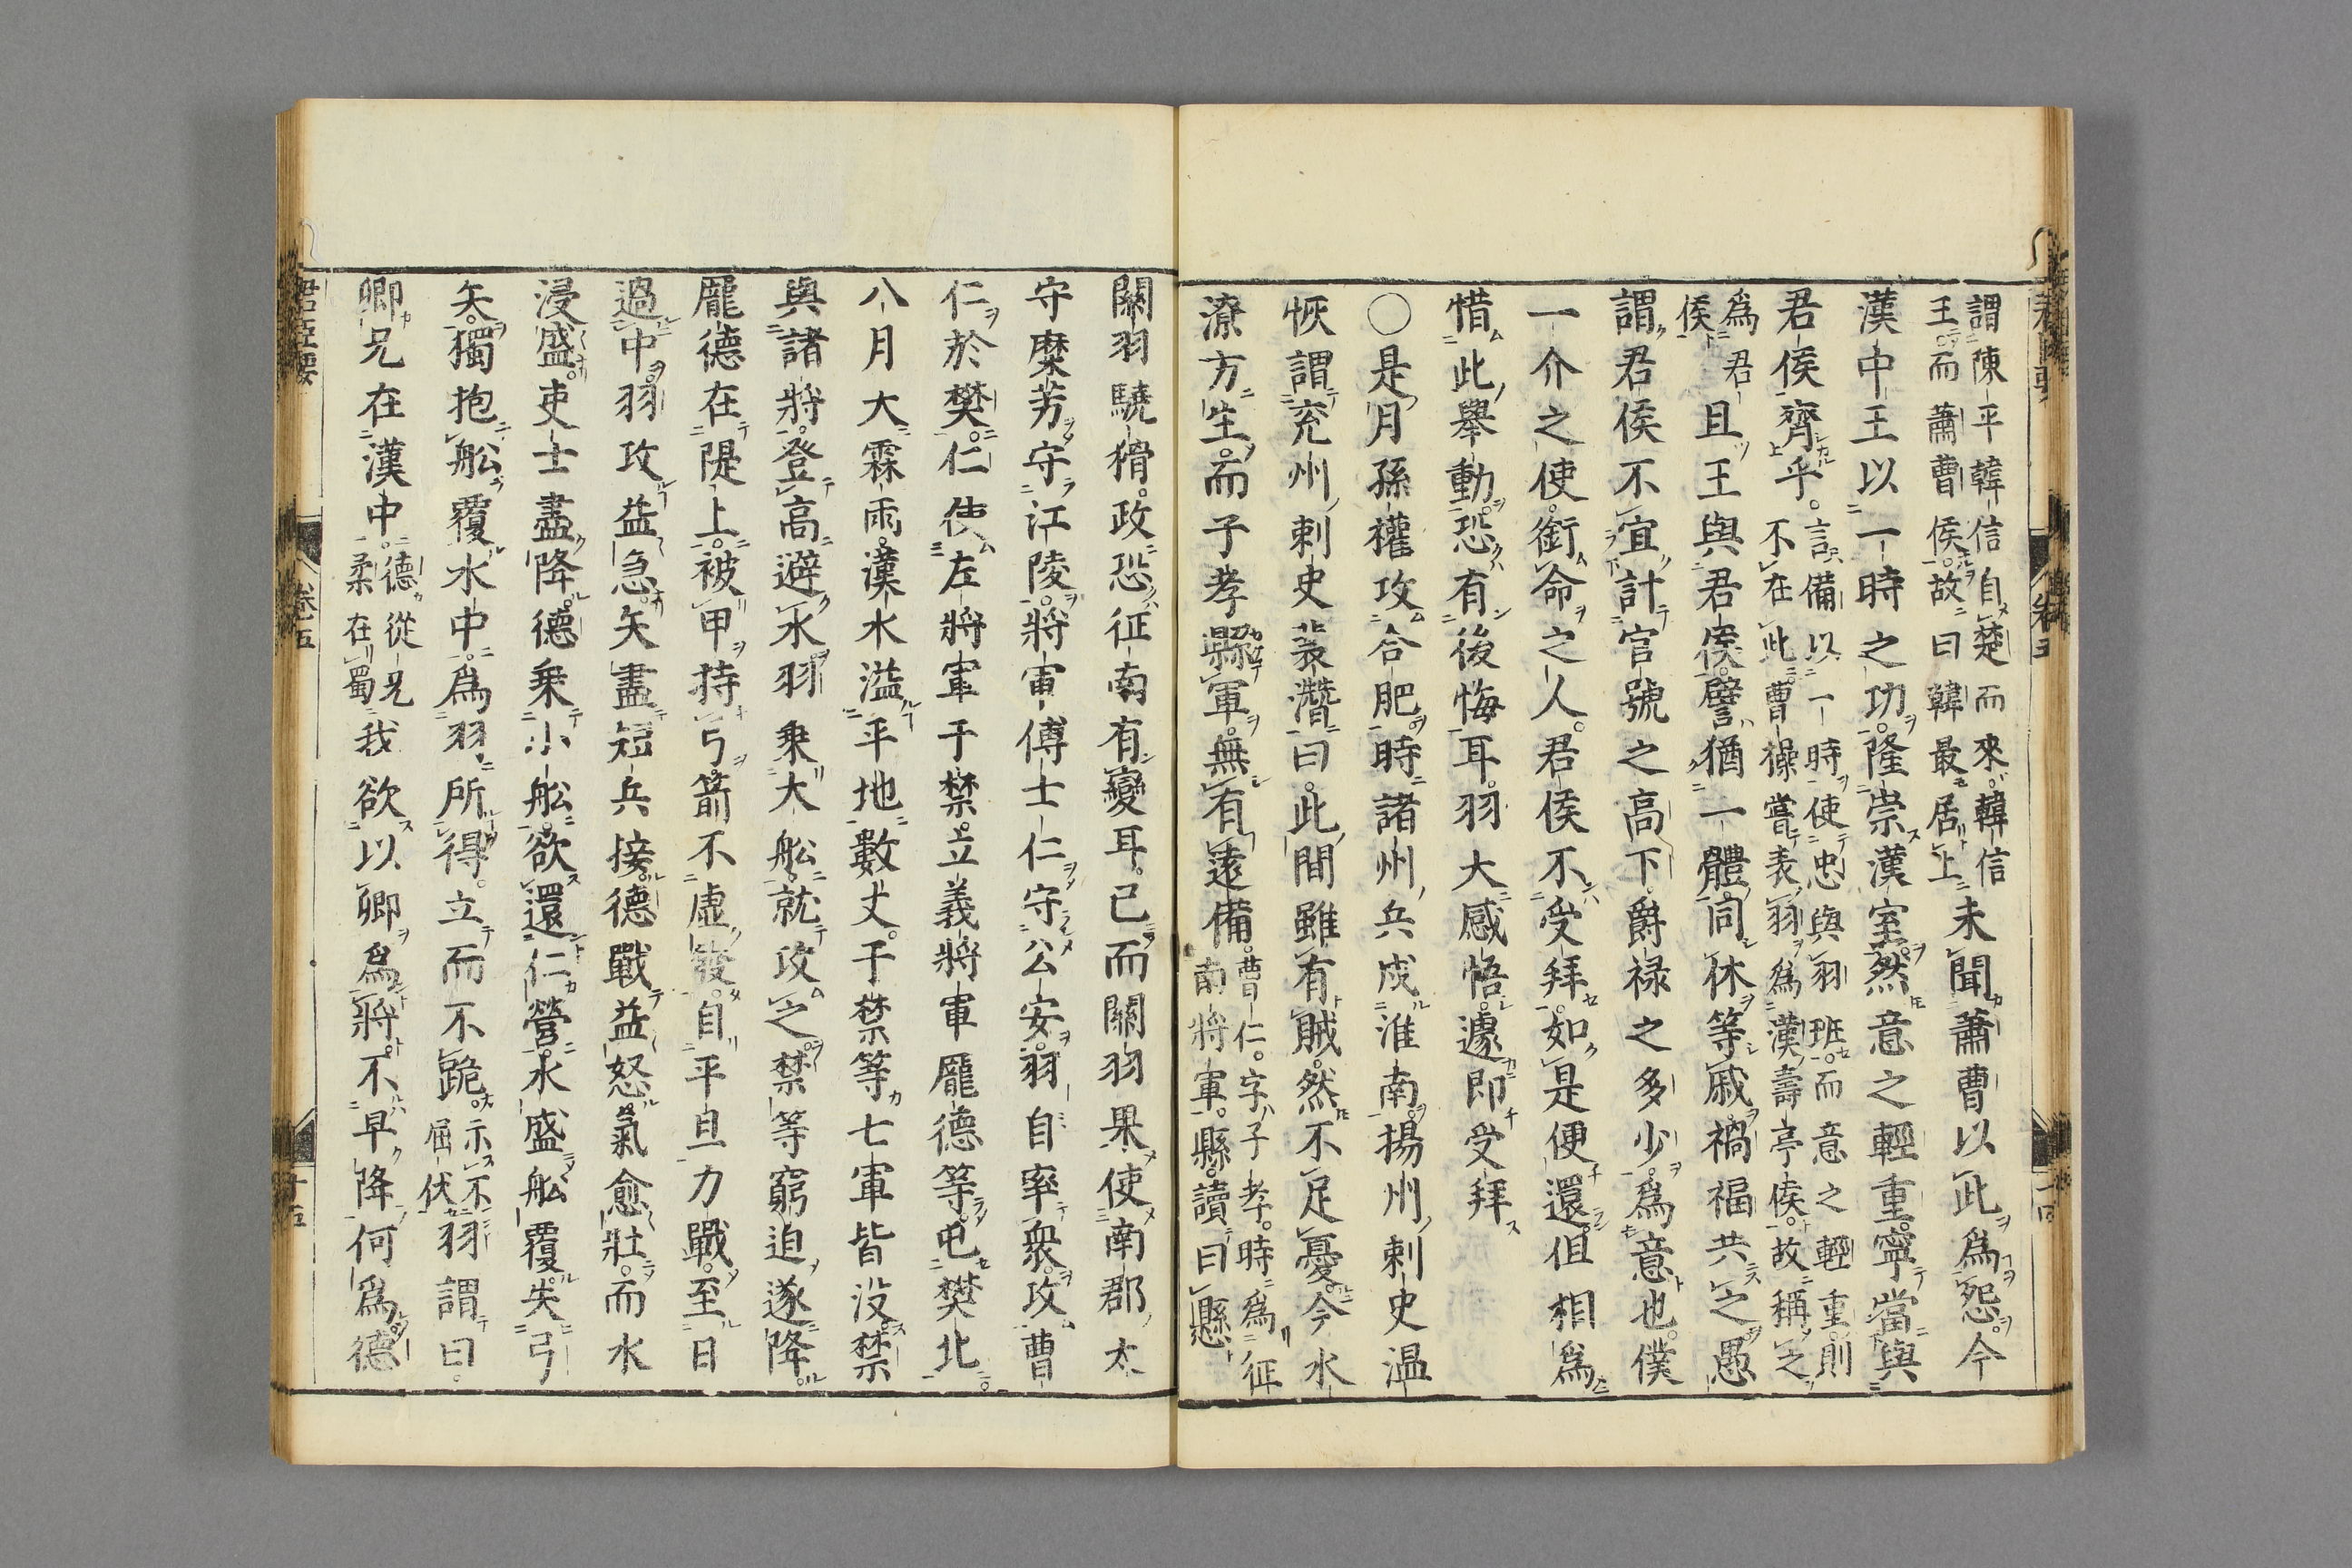 謂陳平韓信自楚而來韓信
王而蕭曹侯故曰韓最居上未聞蕭曹以此爲怨今
漢中王以一時之功隆崇漢室然意之輕重寧當與
君侯齊乎言備以一時使忠與羽班而意之輕重則
不在此曹操嘗表羽爲漢壽亭侯故稱之
爲君
侯且王與君侯譬猶一體同休等戚禍福共之愚
謂君侯不宜計官號之高下爵祿之多少爲意也僕
一介之使銜命之人君侯不受拜如是便還但相爲
惜此舉動恐有後悔耳羽大感悟遽即受拜
〇是月孫權攻合肥時諸州兵戍淮南揚州刺史温
恢謂兖州刺史裴潛曰此間雖有賊然不足憂今水
潦方生而子孝縣軍無有遠備曹仁字子孝時爲征
南將軍縣讀曰懸
關羽驍猾政恐征南有變耳已而關羽果使南郡太
守麋芳守江陵將軍傅士仁守公安羽自率衆攻曹
仁於樊仁使左將軍于禁立義將軍龐德等屯樊北
八月大霖雨漢水溢平地數丈于禁等七軍皆没禁
與諸將登高避水羽乗大舩就攻之禁等窮迫遂降
龐德在隄上被甲持弓箭不虛發自平旦力戰至日
過中羽攻益急矢盡短兵接德戰益怒氣愈壯而水
浸盛吏士盡降德乗小舩欲還仁營水盛舩覆失弓
矢獨抱舩覆水中爲羽所得立而不跪示不
屈伏羽謂曰
卿兄在漢中德從兄
柔在蜀我欲以卿爲將不早降何爲德
卷五
十五